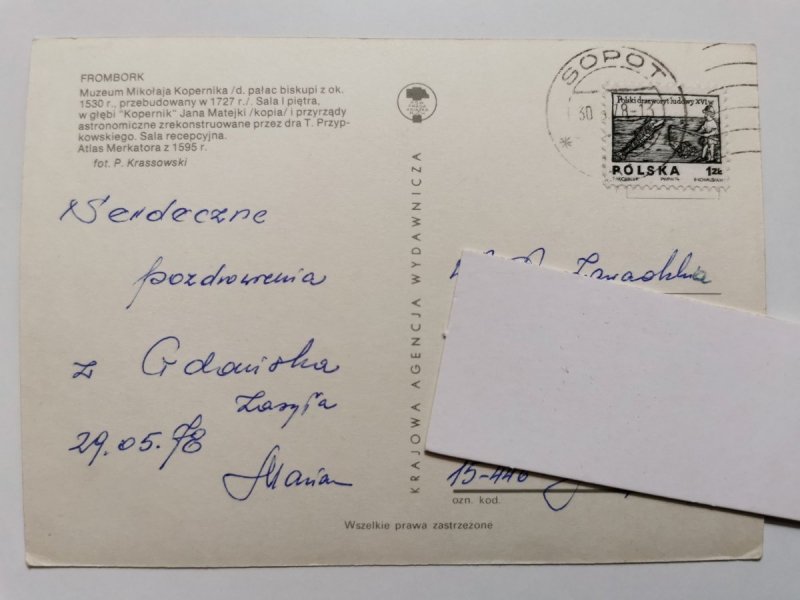 FROMBORK
Muzeum Mikołaja Kopernika /d. pałac biskupi z ok.
1530 r., przebudowany w 1727 r./. Sala I piętra,
w głębi "Kopernik" Jana Matejki /kopia/ i przyrządy
astronomiczne zrekonstruowane przez dra T. Przyp-
kowskiego. Sala recepcyjna.
Atlas Merkatora z 1595 r.
fot. P. Krassowski
Serdeczne
pozdrowienia
z Gdańska
zasyła
29.05.78
Marian
KRAJOWA AGENCJA WYDAWNICZA
SOPOT
30
78-13
Polski drzeworyt ludowy XVI w
POLSKA 1 ZŁ
15-440
ozn. kod.
Wszelkie prawa zastrzeżone